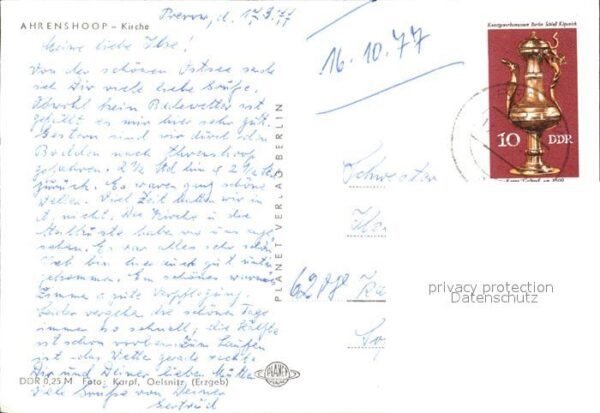 AHRENSHOOP – Kirche
Prerow, d. 17.9.77
Meine liebe Ilse!
Von der schönen Ostsee sende
ich Dir viele liebe Grüße.
Obwohl kein Badewetter ist
gefällt es mir hier sehr gut.
Gestern sind wir durch den
Bodden nach Ahrenshoop
gefahren. 2½ Std hin u 2½ Std
zurück. Es waren ganz schöne
Wellen. Viel Zeit hatten wir in
A. nicht. Die Kirche u. die
haben wir uns ange
sehen. Es war alles sehr schön
Ich bin hier auch gut unter
gekommen. Ein schönes warmes
Zimmer u gute Verpflegung.
Leider vergehen die schönen Tage
immer so schnell, die Hälfte
ist schon vorbei. Zum Laufen
ist das Wetter gerade recht.
Dir und Deiner lieben Mutter
viele Grüße von Deiner
Gertrud
DDR 0,25 M Foto: Karpf, Oelsnitz (Erzgeb)
PLANET VERLAG BERLIN
PLANET
16.10.77
Kunstgewerbemuseum Berlin Schloß Köpenick
10 DDR
Schwester
Ilse
privacy protection
Datenschutz